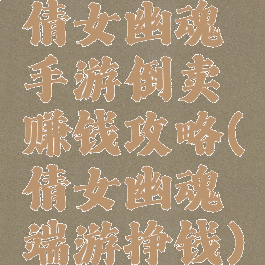 倩女幽魂
手游倒卖
赚钱攻略(
倩女幽魂
端游挣钱)